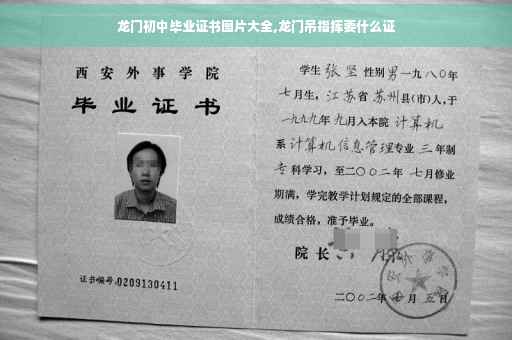 龙门初中毕业证书图片大全,龙门吊指挥要什么证
西安外事学院
毕业证书
证书编号:0209130411
学生 张坚 性别 男 一九八〇年
七月生, 江苏省 苏州县(市)人,于
一九九九年 九月入本院 计算机
系 计算机信息管理专业 三 年制
专科学习, 至二〇〇二年 七月修业
期满, 学完教学计划规定的全部课程,
成绩合格, 准予毕业。
院长
二〇〇二年 七 月 五 日